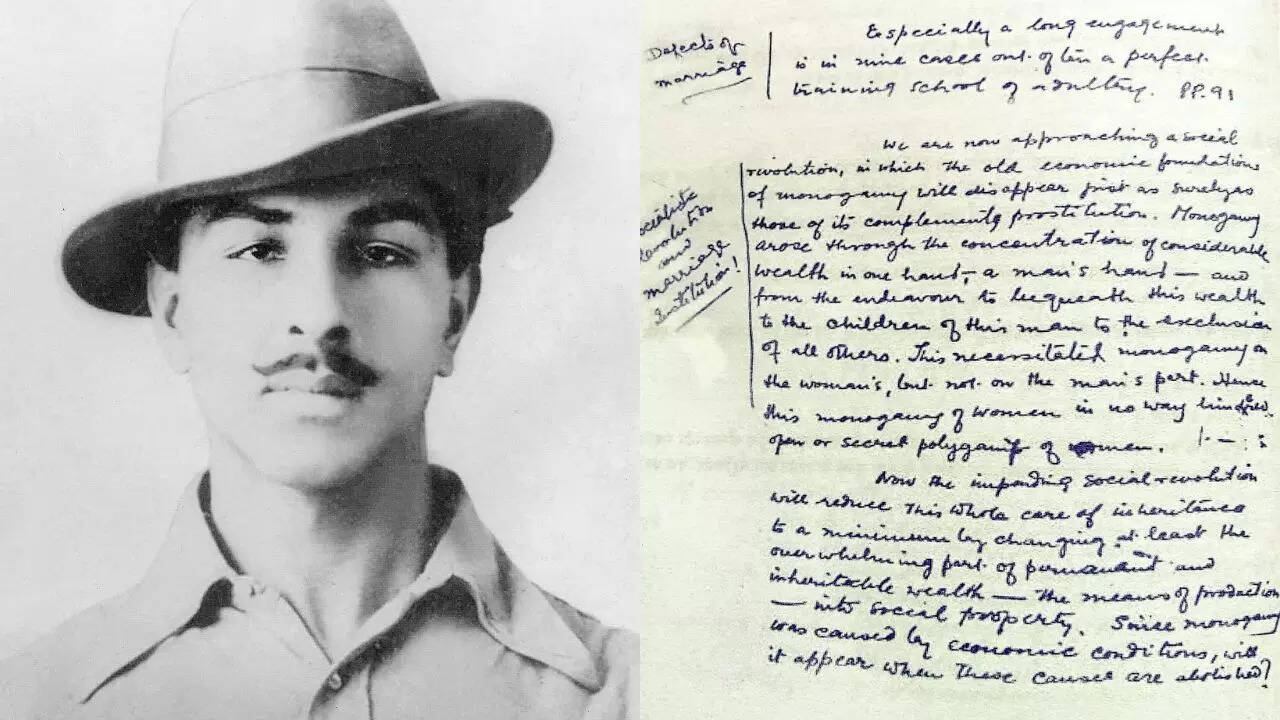 Defects of
marriage
Especially a long engagement
is in nine cases out of ten a perfect
training school of adultery. PP. 91
We are now approaching a social
revolution, in which the old economic foundations
of monogamy will disappear just as surely as
those of its complement, prostitution. Monogamy
arose through the concentration of considerable
wealth in one hand, a man's hand — and
from the endeavour to bequeath this wealth
to the children of this man to the exclusion
of all others. This necessitated monogamy on
the woman's, but not on the man's part. Hence
this monogamy of women in no way hindered
open or secret polygamy of men.
Socialistic
Revolution
and
marriage
Institution!
Now the impending social revolution
will reduce this whole care of inheritance
to a minimum by changing at least the
overwhelming part of permanent and
inheritable wealth — the means of production
— into social property. Since monogamy
was caused by economic conditions, will
it appear when these causes are abolished?